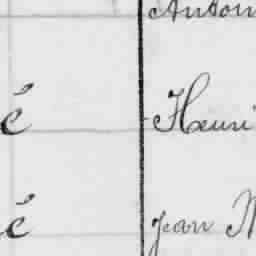 Anton
é Henri
é Jean M